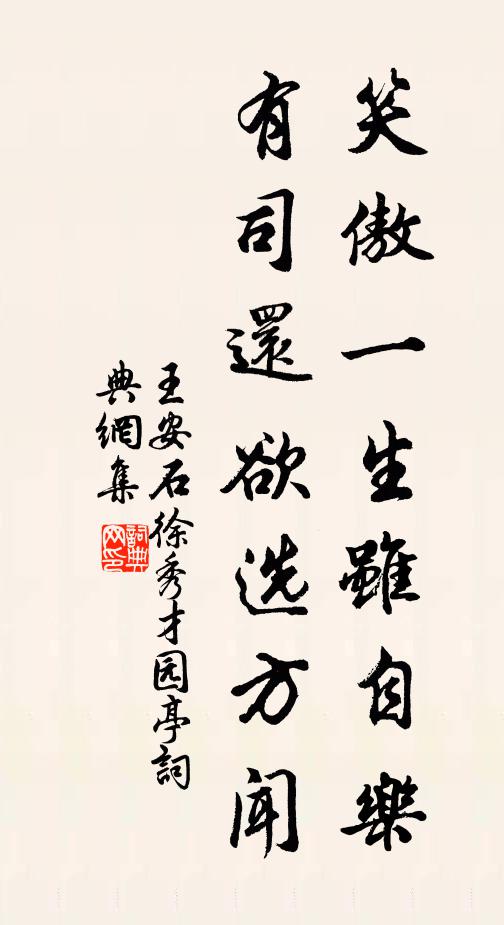 笑傲一生雖自樂
有司還欲选方聞
王安石徐秀才园亭詞
典網集
詞典
网印